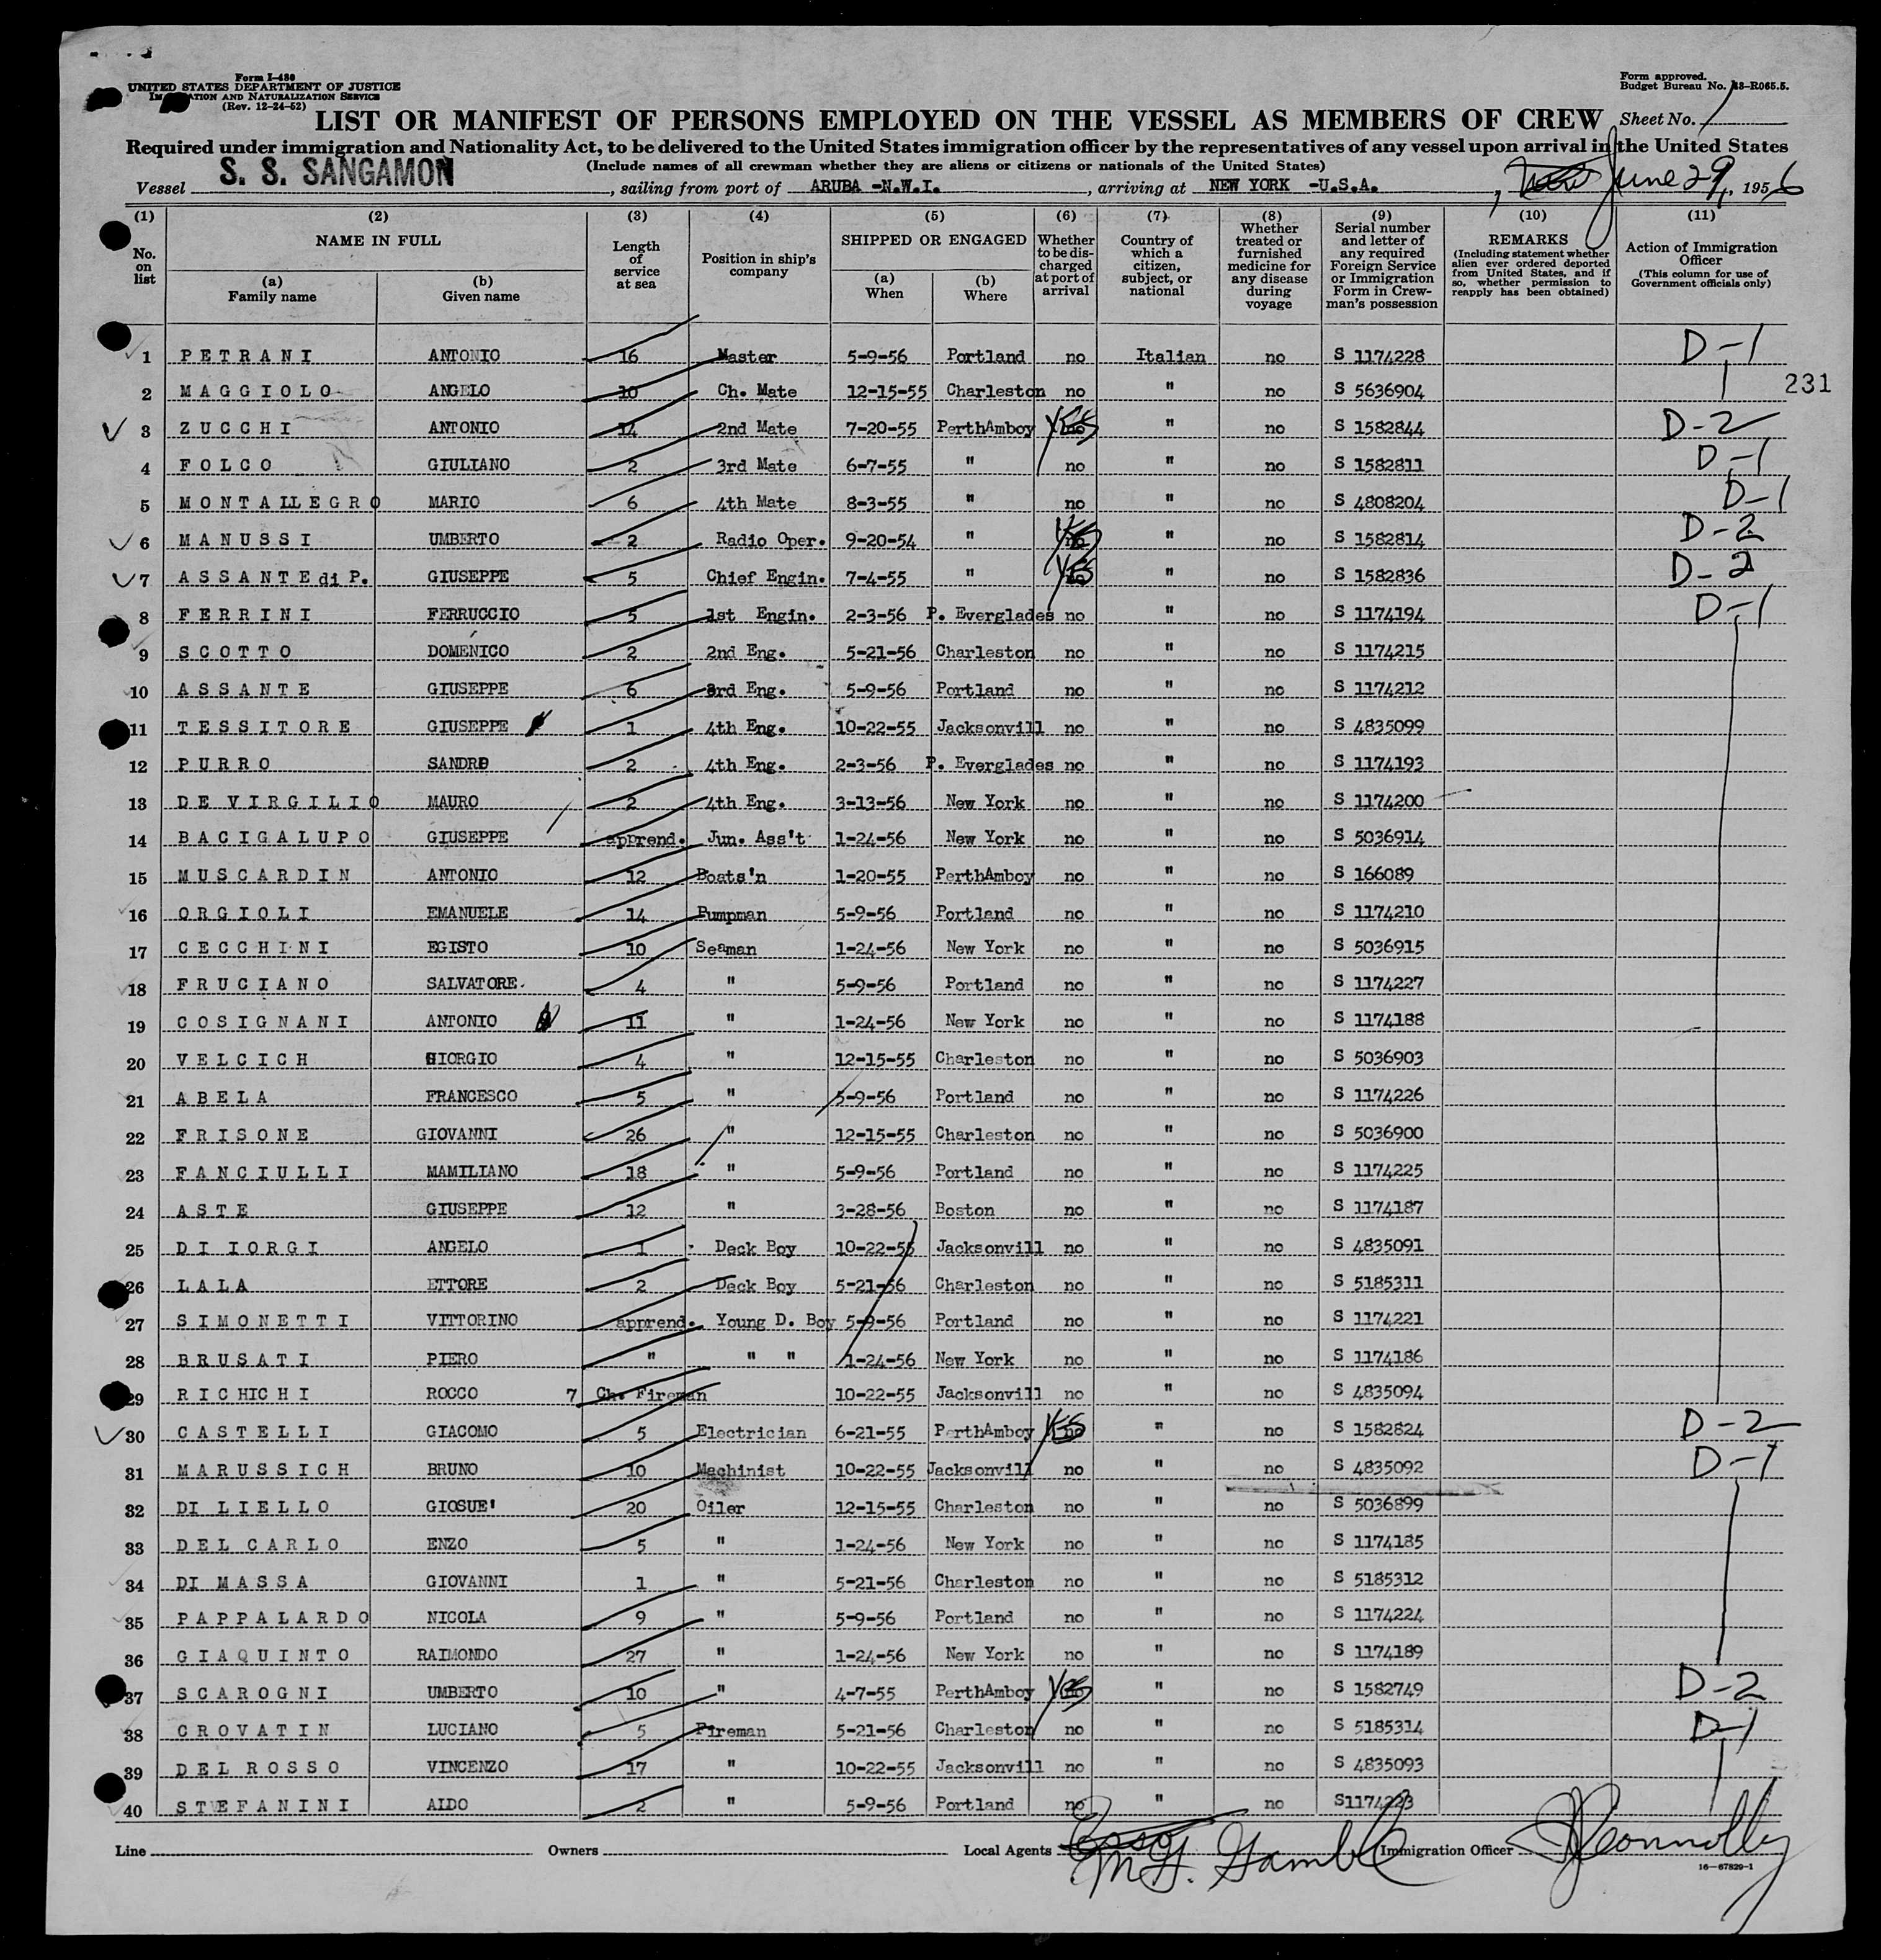 Form I-480
UNITED STATES DEPARTMENT OF JUSTICE
IMMIGRATION AND NATURALIZATION SERVICE
(Rev. 12-24-52)
Form approved.
Budget Bureau No. 43-R065.5.
LIST OR MANIFEST OF PERSONS EMPLOYED ON THE VESSEL AS MEMBERS OF CREW Sheet No. 1
Required under immigration and Nationality Act, to be delivered to the United States immigration officer by the representatives of any vessel upon arrival in the United States
(Include names of all crewman whether they are aliens or citizens or nationals of the United States)
Vessel S. S. SANGAMON, sailing from port of ARUBA -N.W.I., arriving at NEW YORK -U.S.A., June 29, 1956
(1) (2) (3) (4) (5) (6) (7) (8) (9) (10) (11)
No. on list NAME IN FULL (a) Family name (b) Given name Length of service at sea Position in ship's company SHIPPED OR ENGAGED (a) When (b) Where Whether to be discharged at port of arrival Country of which a citizen, subject, or national Whether treated or furnished medicine for any disease during voyage Serial number and letter of any required Foreign Service or Immigration Form in Crewman's possession REMARKS (Including statement whether alien ever ordered deported from United States, and if so, whether permission to reapply has been obtained) Action of Immigration Officer (This column for use of Government officials only)
1 PETRANI ANTONIO 16 Master 5-9-56 Portland no Italian no S 1174228 D-1
2 MAGGIOLO ANGELO 10 Ch. Mate 12-15-55 Charleston no " no S 5636904 231
3 ZUCCHI ANTONIO 14 2nd Mate 7-20-55 PerthAmboy YES " no S 1582844 D-2
4 FOLCO GIULIANO 2 3rd Mate 6-7-55 " no " no S 1582811 D-1
5 MONTALLEGRO MARIO 6 4th Mate 8-3-55 " no " no S 4808204 D-1
6 MANUSSI UMBERTO 2 Radio Oper. 9-20-54 " YES " no S 1582814 D-2
7 ASSANTE di P. GIUSEPPE 5 Chief Engin. 7-4-55 " YES " no S 1582836 D-2
8 FERRINI FERRUCCIO 5 1st Engin. 2-3-56 P. Everglades no " no S 1174194 D-1
9 SCOTTO DOMENICO 2 2nd Eng. 5-21-56 Charleston no " no S 1174215
10 ASSANTE GIUSEPPE 6 3rd Eng. 5-9-56 Portland no " no S 1174212
11 TESSITORE GIUSEPPE 1 4th Eng. 10-22-55 Jacksonvill no " no S 4835099
12 PURRO SANDRO 2 4th Eng. 2-3-56 P. Everglades no " no S 1174193
13 DE VIRGILIO MAURO 2 4th Eng. 3-13-56 New York no " no S 1174200
14 BACIGALUPO GIUSEPPE apprend. Jun. Ass't 1-24-56 New York no " no S 5036914
15 MUSCARDIN ANTONIO 12 Boats'n 1-20-55 PerthAmboy no " no S 166089
16 ORGIOLI EMANUELE 14 Pumpman 5-9-56 Portland no " no S 1174210
17 CECCHINI EGISTO 10 Seaman 1-24-56 New York no " no S 5036915
18 FRUCIANO SALVATORE. 4 " 5-9-56 Portland no " no S 1174227
19 COSIGNANI ANTONIO 11 " 1-24-56 New York no " no S 1174188
20 VELCICH GIORGIO 4 " 12-15-55 Charleston no " no S 5036903
21 ABELA FRANCESCO 5 " 5-9-56 Portland no " no S 1174226
22 FRISONE GIOVANNI 26 " 12-15-55 Charleston no " no S 5036900
23 FANCIULLI MAMILIANO 18 " 5-9-56 Portland no " no S 1174225
24 ASTE GIUSEPPE 12 " 3-28-56 Boston no " no S 1174187
25 DI IORGI ANGELO 1 Deck Boy 10-22-55 Jacksonvill no " no S 4835091
26 LALA ETTORE 2 Deck Boy 5-21-56 Charleston no " no S 5185311
27 SIMONETTI VITTORINO apprend. Young D. Boy 5-9-56 Portland no " no S 1174221
28 BRUSATI PIERO " " " 1-24-56 New York no " no S 1174186
29 RICHICHI ROCCO 7 Ch. Fireman 10-22-55 Jacksonvill no " no S 4835094
30 CASTELLI GIACOMO 5 Electrician 6-21-55 PerthAmboy YES " no S 1582824 D-2
31 MARUSSICH BRUNO 10 Machinist 10-22-55 Jacksonvill no " no S 4835092 D-1
32 DI LIELLO GIOSUE' 20 Oiler 12-15-55 Charleston no " no S 5036899
33 DEL CARLO ENZO 5 " 1-24-56 New York no " no S 1174185
34 DI MASSA GIOVANNI 1 " 5-21-56 Charleston no " no S 5185312
35 PAPPALARDO NICOLA 9 " 5-9-56 Portland no " no S 1174224
36 GIAQUINTO RAIMONDO 27 " 1-24-56 New York no " no S 1174189
37 SCAROGNI UMBERTO 10 " 4-7-55 PerthAmboy YES " no S 1582749 D-2
38 CROVATIN LUCIANO 5 Fireman 5-21-56 Charleston no " no S 5185314 D-1
39 DEL ROSSO VINCENZO 17 " 10-22-55 Jacksonvill no " no S 4835093
40 STEFANINI ALDO 2 " 5-9-56 Portland no " no S1174223
Line Owners Local Agents Esso M.F. Gamble Immigration Officer J Connolly
16-67829-1